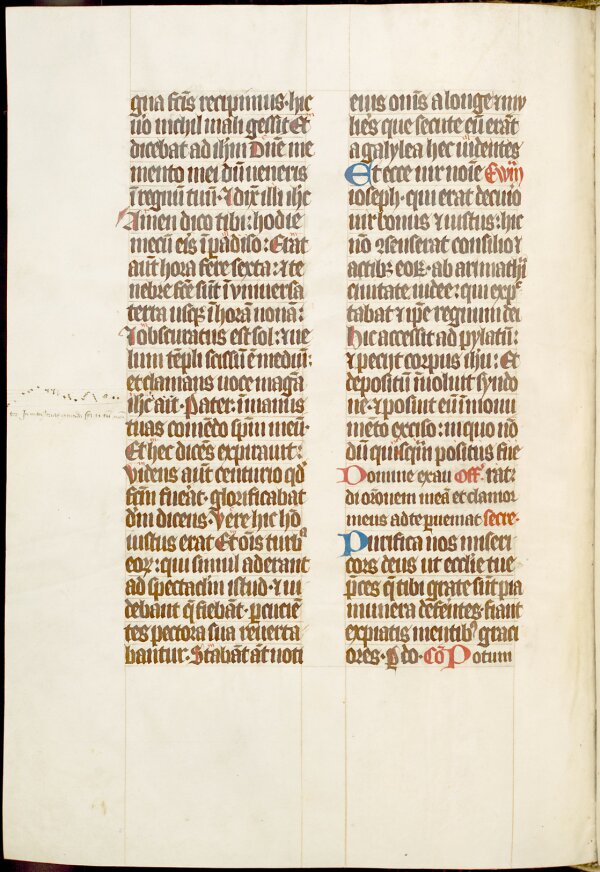 gna fctīs recipimus · hic
uō nichil mali gessit Et
dicebat ad ihm Dnē me
mento mei dū ueneris
ī regnū tuū · ⁊ dix̄ illi ihc
Amen dico tibi : hodie
mecū eis ī padiso : Erat
aut̄ hora fere sexta : ⁊ te
nebre fcē sūt ī vniuersa
terra usqꝫ ī horā nona :
⁊ obscuratus est sol : ⁊ ue
lum tēpli scissū ē mediū :
et clamans uoce magā
ihc̄ aīt · Pater : ī manus
tuas comēdo spm̄ meū ·
Et hec dicēs expirauit :
Videns aūt centurio qd
fcm̄ fuāt · glorificabat
dm̄ dicens · Vere hic hō
iustus erat Et oīs turbꝰ
eoꝝ : qui simul aderant
ad spectaclm istud · ⁊ ui
debant q̄ fiebāt · pcucie
tes pectora sua reuerta
bantur · Stabāt āt noti
eius om̄s a longe ⁊ mu
lies que secute eū erāt
a galylea hec uidentes
Et ecce uir noīe Ewm
ioseph · qui erat decuio
uir bonus ⁊ iustus : hic
nō ꝯsenserat consilio ⁊
actibꝫ eoꝝ · ab arimathi
ciuitate iudee : qui expc
tabat ⁊ ipē regnum dei
hic accessit ad pylatū :
⁊ peciit corpus ihu : Et
depositū īuoluit syndo
ne · ⁊ posuit eū ī monu
mēto exciso : in quo nō
dū quisqm̄ positus fue
Domine exau Off. rat :
di oronem meā et clamor
meus ad te pueniat secre ·
Purifica nos miseri
cors deus ut ecclie tue
pces q̄ tibi grate sūt pia
munera defentes · fiant
expiatis mentibꝰ graci
ores · P do · Cō Potum